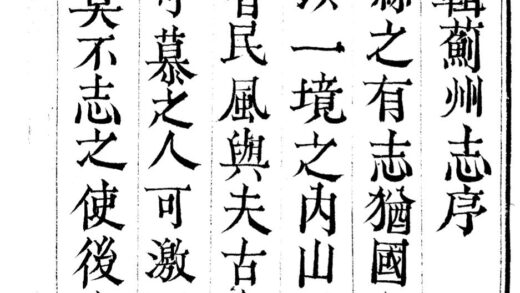 輯薊州志序
縣之有志猶國
一境之内山
民風與夫古
可慕之人可激
莫不志之使後